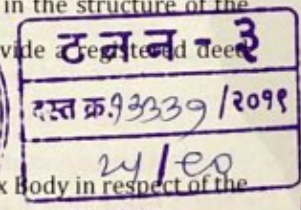 in the structure of the
vide a registered deed
ट न न - ३
दस्त क्र. १३३३१ /२०१९
२५/९०
x Body in respect of the